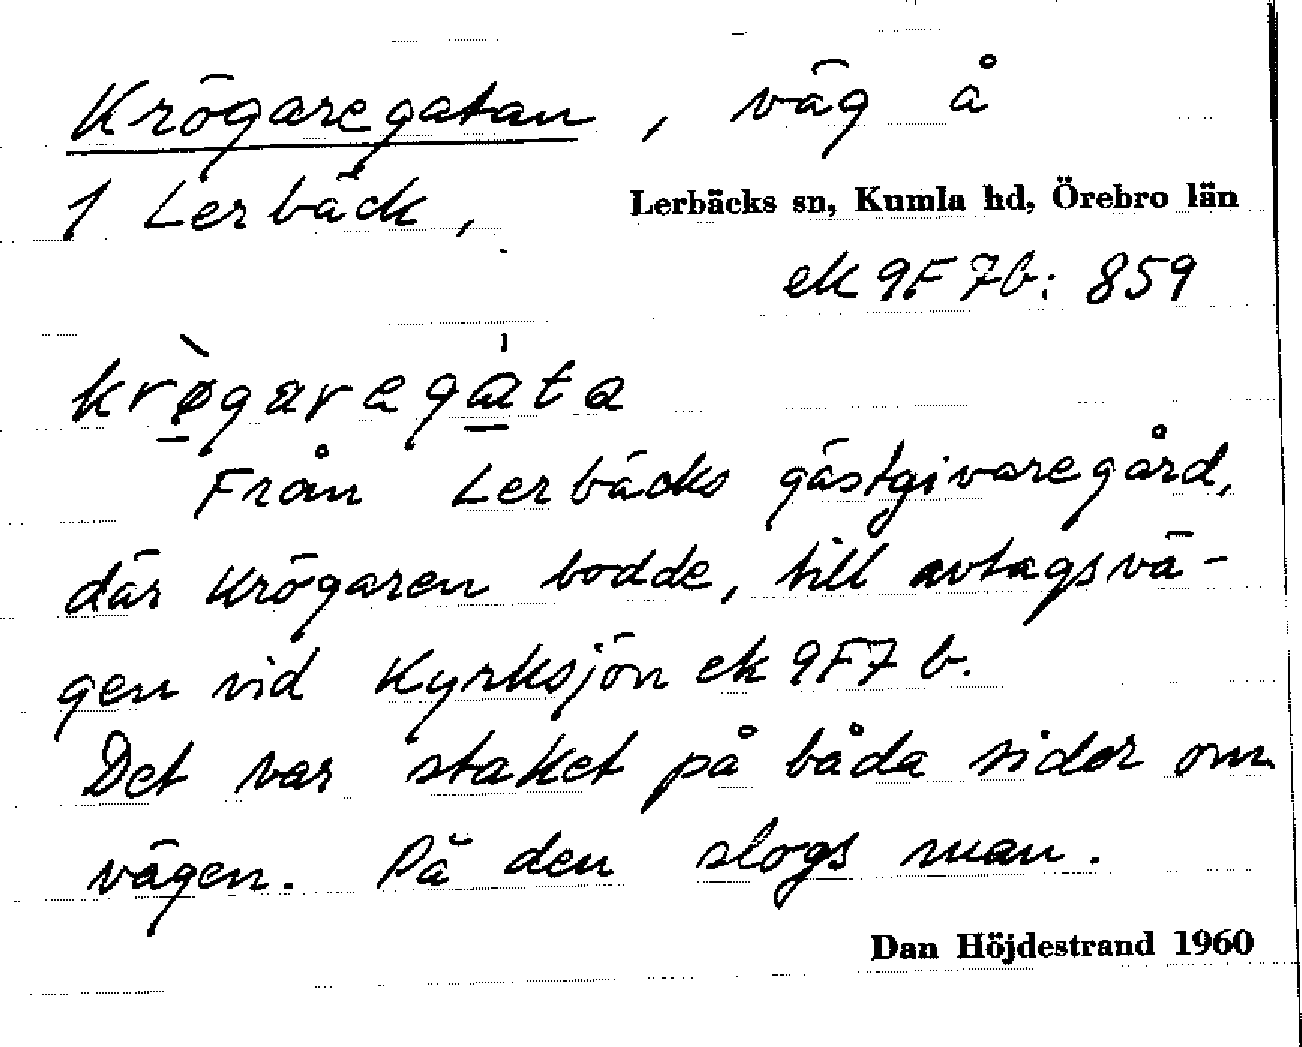 Krögaregatan, väg å
1 Lerbäck, Lerbäcks sn, Kumla hd, Örebro län
ek 9F 7b: 859
krø̀garegáta
Från Lerbäcks gästgivaregård,
där Krögaren bodde, till avtagsvä-
gen vid Kyrksjön ek 9F7 b.
Det var staket på båda sidor om
vägen. På den slogs man.
Dan Höjdestrand 1960